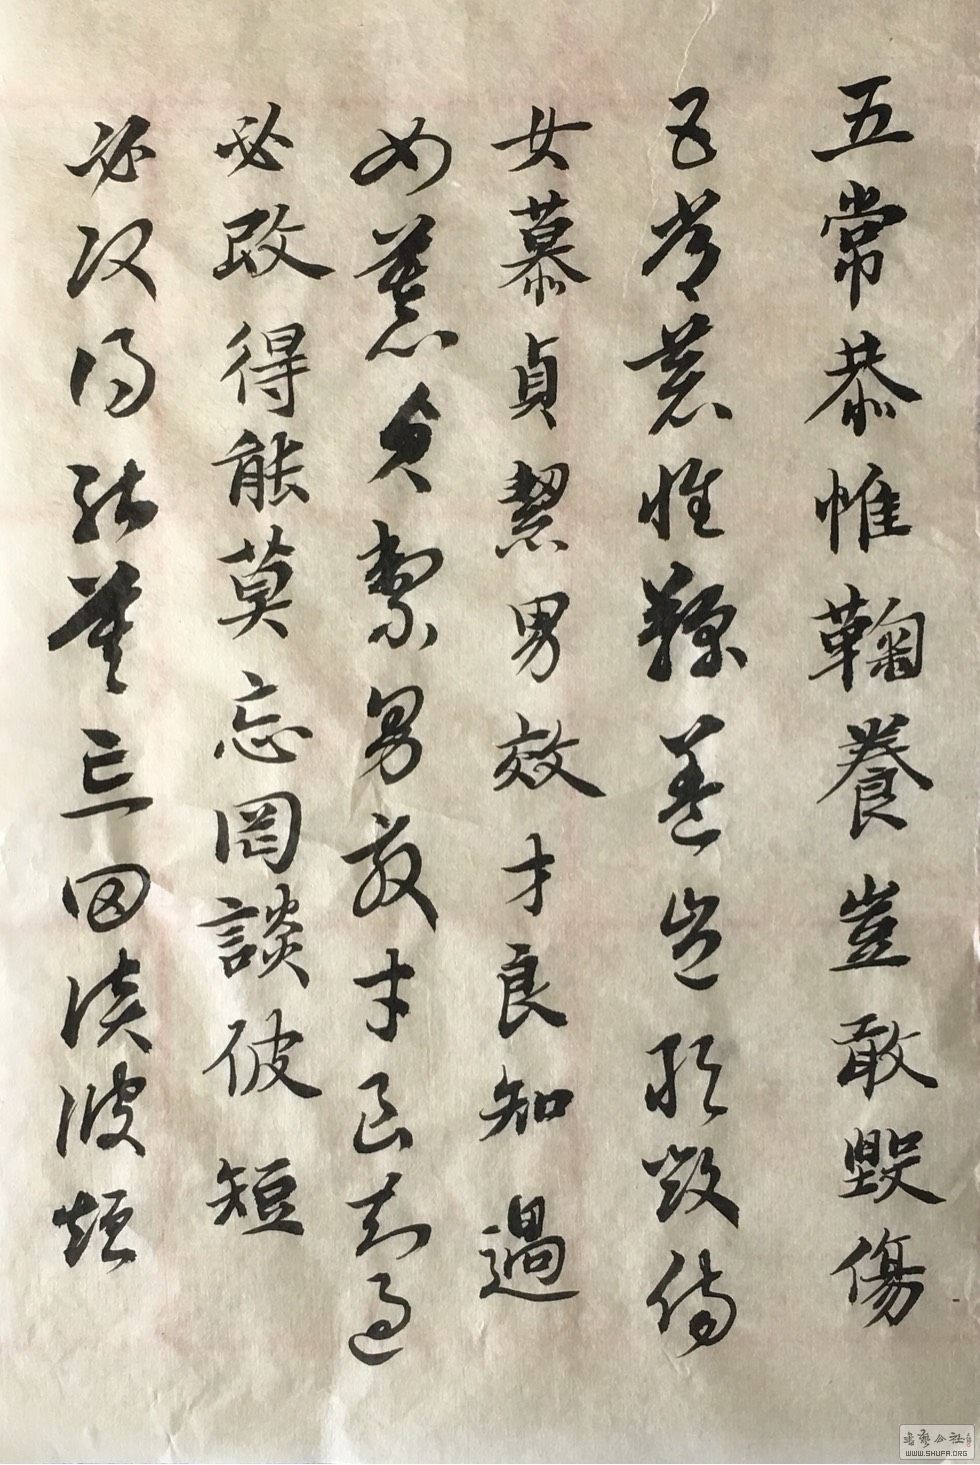 五常恭惟鞠養豈敢毀傷
五常恭惟鞠養豈敢毀傷
女慕貞絜男效才良知過
女慕貞絜男效才良知過
必改得能莫忘罔談彼短
必改得能莫忘罔談彼短
書藝公社
WWW.SHUFA.ORG